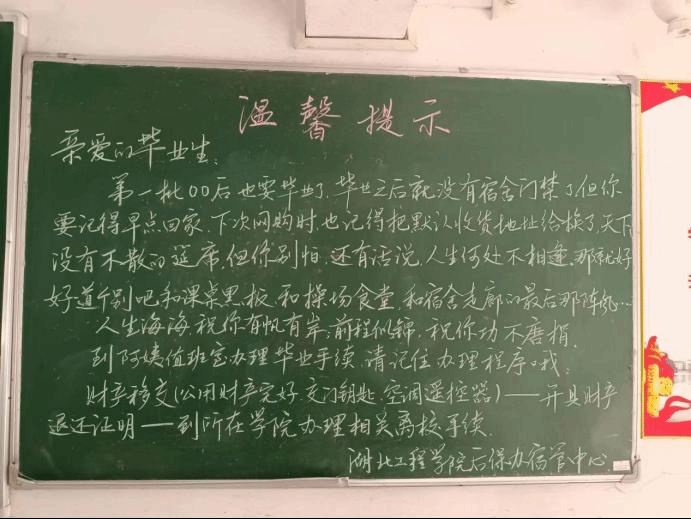 温馨提示
亲爱的毕业生:
第一批00后也要毕业了,毕业之后就没有宿舍门禁了,但你
要记得早点回家,下次网购时,也记得把默认收货地址给换了,天下
没有不散的延席,但你别怕,还有话说,人生何处不相逢,那就好
好道个别吧和课桌黑板,和操场食堂,和宿舍走廊的最后那阵风…
人生海海,祝你有帆有岸,前程似锦,祝你功不唐捐.
到阿姨值班室办理毕业手续,请记住办理程序哦:
财产移交(公用财产完好、交门钥匙、空调遥控器)——开具财产
退还证明——到所在学院办理相关离校手续.
湖北工程学院后保办宿管中心